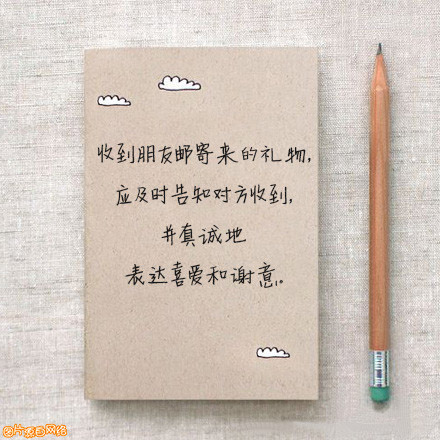 收到朋友邮寄来的礼物,
应及时告知对方收到,
并真诚地
表达喜爱和谢意。
图片来自网络